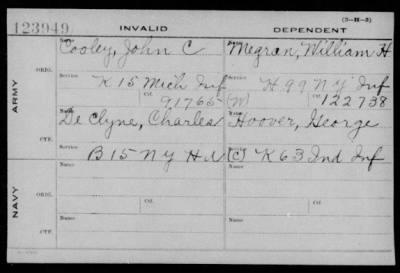 (3-H-3)
123949 INVALID DEPENDENT
Name Name
Cooley, John C Megran, William H
ARMY ORIG. Service Service
K 15 Mich Inf H 99 N Y Inf
Ctf. 91765 (W) Ctf. 122738
Name
De Clyne, Charles Hoover, George
CTF. Service
B 15 N Y H A (C) K 63 Ind Inf
NAVY ORIG. Name Name
Ctf. Ctf.
CTF. Name Name